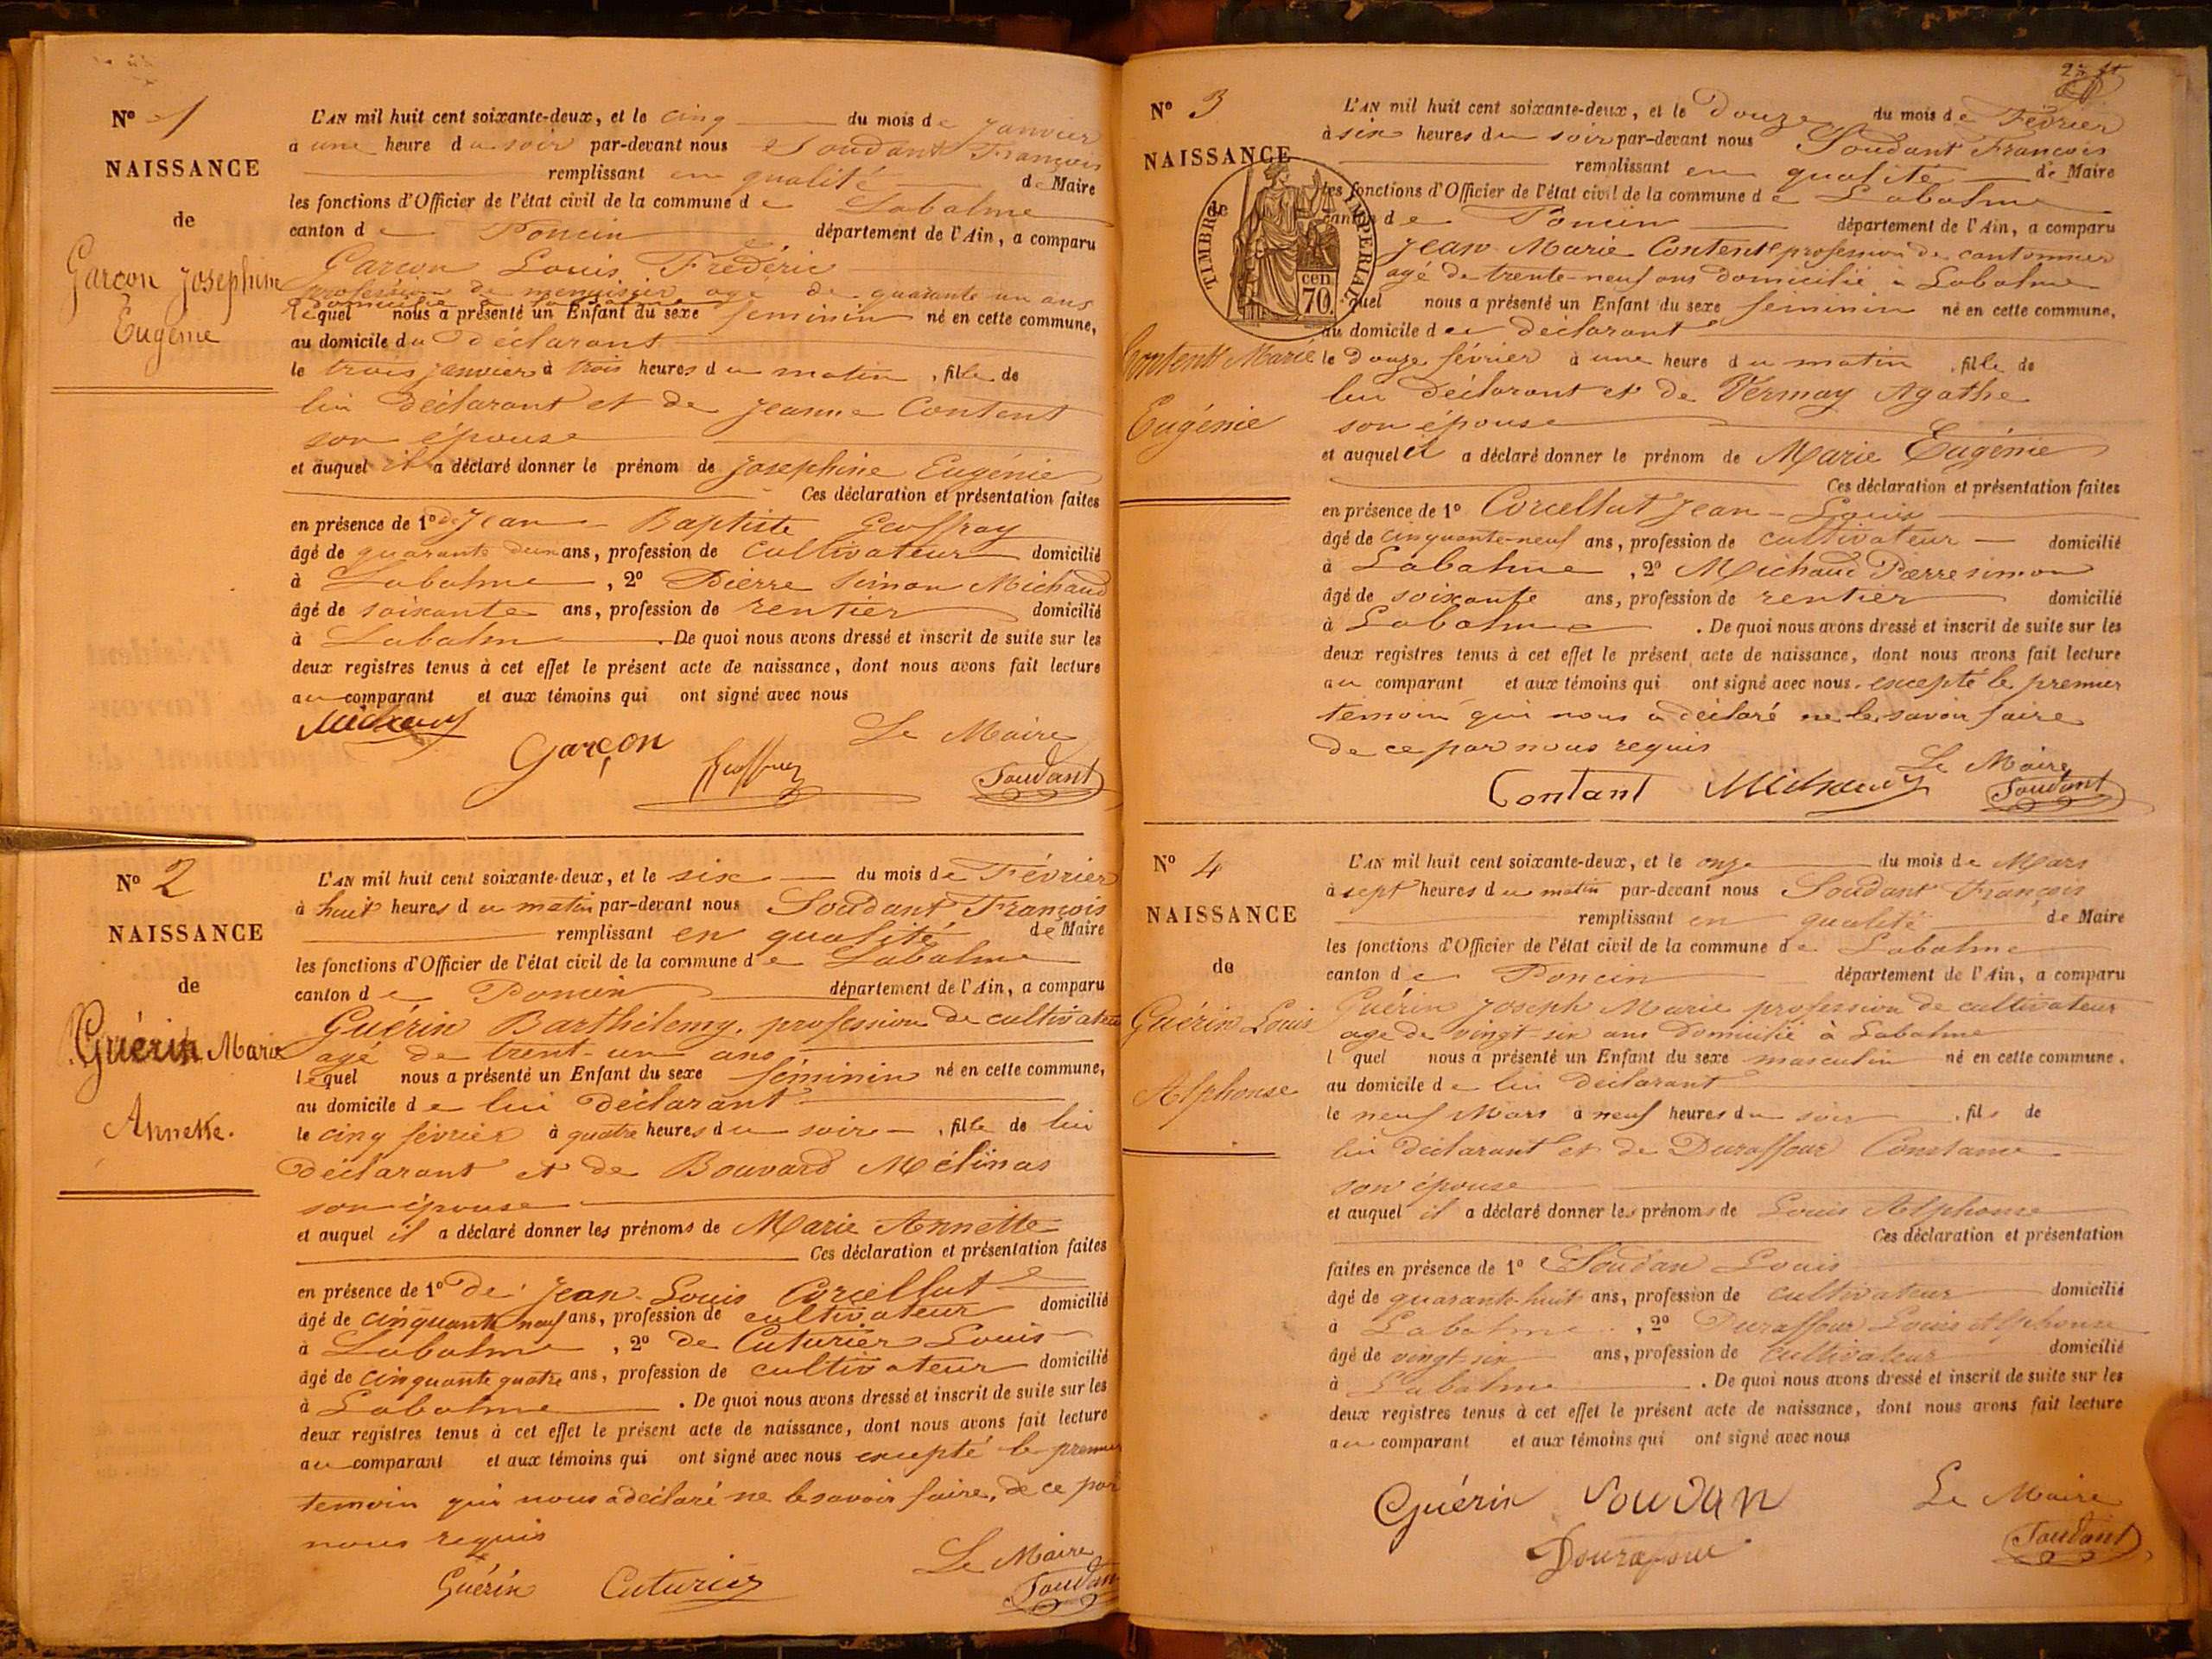 N° 1
NAISSANCE
de
Garcon Josephine
Eugénie
L'AN mil huit cent soixante-deux, et le cinq du mois de Janvier
à une heure du soir par-devant nous Soudant François
remplissant en qualité de Maire
les fonctions d'Officier de l'état civil de la commune de Labalme
canton de Poncin département de l'Ain, a comparu
Garcon Louis Frédéric
profession de menuisier agé de quarante un ans
domicilié à Labalme
lequel nous a présenté un Enfant du sexe feminin né en cette commune,
au domicile du déclarant
le trois janvier à trois heures du matin, fille de
lui déclarant et de Jeanne Content
son épouse
et auquel il a déclaré donner le prénom de Josephine Eugénie
Ces déclaration et présentation faites
en présence de 1° de Jean-Baptiste Geoffray
âgé de quarante deux ans, profession de cultivateur domicilié
à Labalme, 2° Pierre Simon Michaud
âgé de soixante ans, profession de rentier domicilié
à Labalme. De quoi nous avons dressé et inscrit de suite sur les
deux registres tenus à cet effet le présent acte de naissance, dont nous avons fait lecture
au comparant et aux témoins qui ont signé avec nous
Michaud
Garçon
Le Maire
Soudant
N° 2
NAISSANCE
de
Guérin Marie
Annette.
L'AN mil huit cent soixante-deux, et le six du mois de Février
à huit heures du matin par-devant nous Soudant François
remplissant en qualité de Maire
les fonctions d'Officier de l'état civil de la commune de Labalme
canton de Poncin département de l'Ain, a comparu
Guérin Barthélemy, profession de cultivateur
agé de trent-un ans
lequel nous a présenté un Enfant du sexe féminin né en cette commune,
au domicile de lui déclarant
le cinq février à quatre heures du soir, fille de lui
déclarant et de Bouvard Mélinas
son épouse
et auquel il a déclaré donner les prénoms de Marie Annette
Ces déclaration et présentation faites
en présence de 1° de Jean-Louis Corcellut
âgé de cinquante neuf ans, profession de cultivateur domicilié
à Labalme, 2° de Cuturier Louis
âgé de cinquante quatre ans, profession de cultivateur domicilié
à Labalme. De quoi nous avons dressé et inscrit de suite sur les
deux registres tenus à cet effet le présent acte de naissance, dont nous avons fait lecture
au comparant et aux témoins qui ont signé avec nous excepté le premier
temoin qui nous a déclaré ne le savoir faire, de ce par
nous requis
Le Maire
Guérin Cuturier Soudant
N° 3
NAISSANCE
de
Content Marie
Eugénie
TIMBRE IMPERIAL
70 cen
L'AN mil huit cent soixante-deux, et le douze du mois de Février
à six heures du soir par-devant nous Soudant François
remplissant en qualité de Maire
les fonctions d'Officier de l'état civil de la commune de Labalme
canton de Poncin département de l'Ain, a comparu
Jean-Marie Content profession de cantonnier
agé de trente-neuf ans domicilié à Labalme
lequel nous a présenté un Enfant du sexe feminin né en cette commune,
au domicile du déclarant
le douze février à une heure du matin, fille de
lui déclarant et de Vermay Agathe
son épouse
et auquel il a déclaré donner le prénom de Marie Eugénie
Ces déclaration et présentation faites
en présence de 1° Corcellut Jean-Louis
âgé de cinquante-neuf ans, profession de cultivateur domicilié
à Labalme, 2° Michaud Pierre simon
âgé de soixante ans, profession de rentier domicilié
à Labalme. De quoi nous avons dressé et inscrit de suite sur les
deux registres tenus à cet effet le présent acte de naissance, dont nous avons fait lecture
au comparant et aux témoins qui ont signé avec nous. excepté le premier
temoin qui nous a déclaré ne le savoir faire
de ce par nous requis
Le Maire
Contant Michaud Soudant
N° 4
NAISSANCE
de
Guérin Louis
Alphonse
L'AN mil huit cent soixante-deux, et le onze du mois de Mars
à sept heures du matin par-devant nous Soudant François
remplissant en qualité de Maire
les fonctions d'Officier de l'état civil de la commune de Labalme
canton de Poncin département de l'Ain, a comparu
Guérin Joseph Marie profession de cultivateur
age de vingt-six ans domicilié à Labalme
l quel nous a présenté un Enfant du sexe masculin né en cette commune.
au domicile de lui déclarant
le neuf Mars à neuf heures du soir, fils de
lui déclarant et de Duraffour Constance
son épouse
et auquel il a déclaré donner les prénoms de Louis Alphonse
Ces déclaration et présentation
faites en présence de 1° Soudan Louis
âgé de quarante-huit ans, profession de cultivateur domicilié
à Labalme, 2° Duraffour Louis Alphonse
âgé de vingt-six ans, profession de cultivateur domicilié
à Labalme. De quoi nous avons dressé et inscrit de suite sur les
deux registres tenus à cet effet le présent acte de naissance, dont nous avons fait lecture
au comparant et aux témoins qui ont signé avec nous
Guérin Soudan Le Maire
Soudant